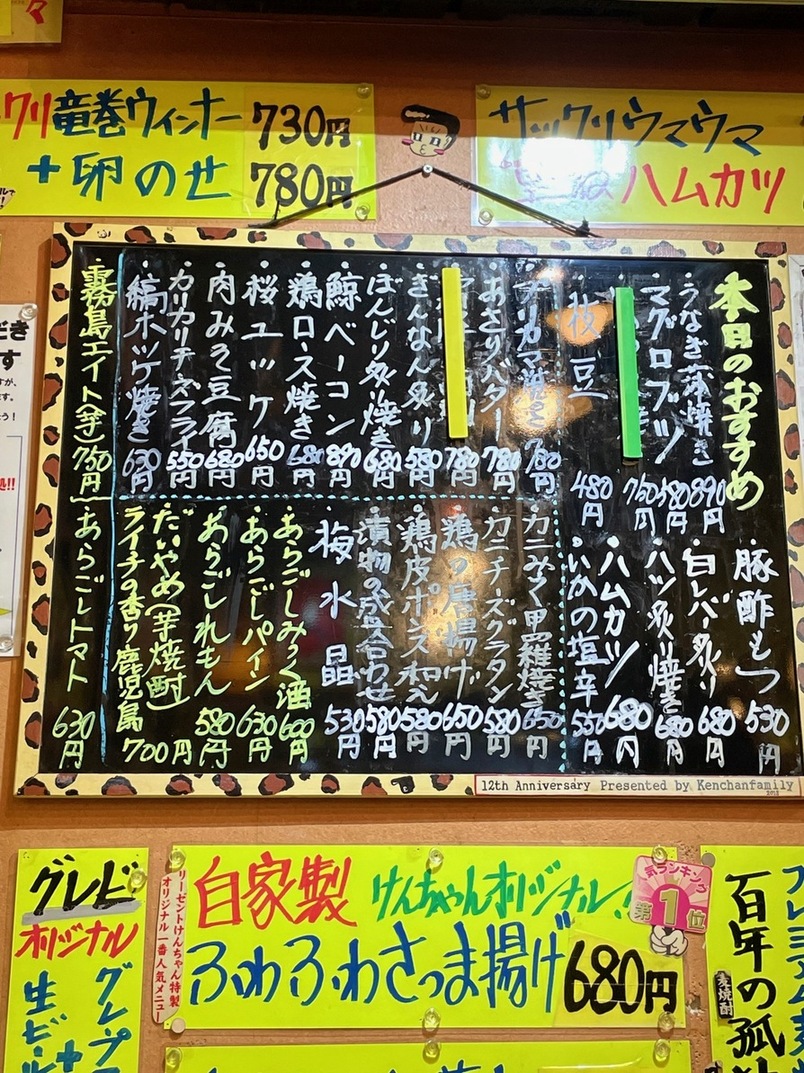 クリ竜巻ウィンナー 730円
+卵のせ 780円
サックリウマウマ
ハムカツ
本日のおすすめ
うなぎ蒲焼き 890円
マグロブツ 580円
760円
枝豆 480円
チリカマ焼き 780円
あさりバター 780円
780円
ぎんなん炙り 580円
ぼんじり炙り焼き 680円
鯨ベーコン 890円
鶏ロース焼き 680円
桜ユッケ 650円
肉みそ豆腐 680円
カリカリチーズフライ 550円
縞ホッケ焼き 630円
霧島エイト(芋) 750円
豚酢もつ 530円
白レバー炙り 680円
ハツ炙り焼き 680円
ハムカツ 680円
いかの塩辛 550円
カニみそ甲羅焼き 650円
カニチーズグラタン 580円
鶏の唐揚げ 650円
鶏皮ポンズ和え 580円
漬物の盛合わせ 580円
梅水晶 530円
あらごしみっく酒 600円
あらごしパイン 630円
あらごしれもん 580円
だいやめ(芋焼酎)
ライチの香り 鹿児島 700円
あらごしトマト 630円
12th Anniversary Presented by Kenchanfamily
2012
グレピ
オリジナル
生ビール
+
グレープ
リーゼントけんちゃん特製
オリジナル一番人気メニュー
自家製 けんちゃんオリジナル!
ふわふわさつま揚げ 680円
人気ランキング
第1位
プレミアム麦焼
百年の孤独
麦焼酎